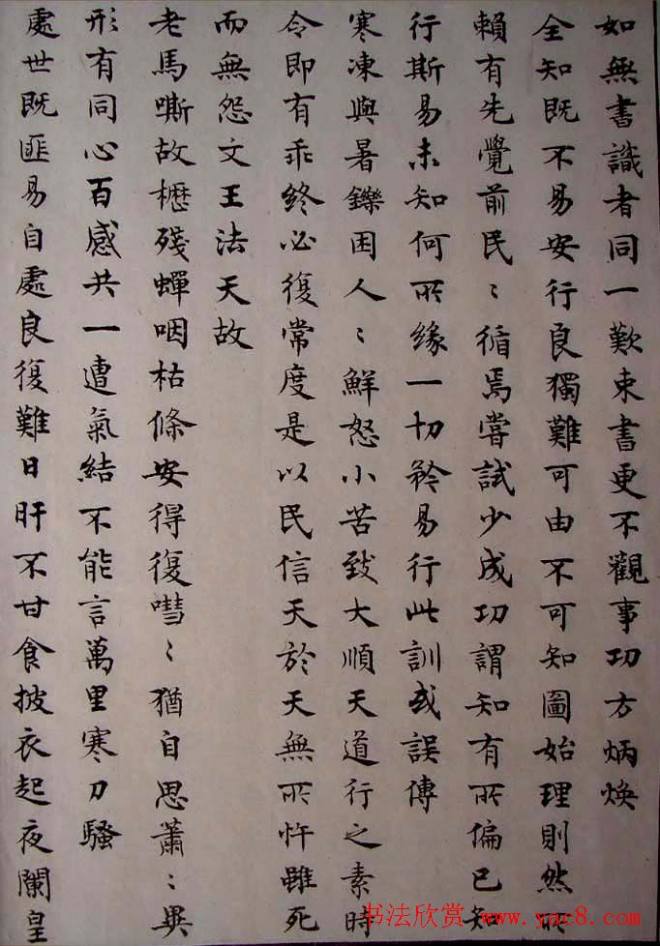 如無書識者同一歎束書更不觀事功方炳煥
全知既不易安行良獨難可由不可知圖始理則然所
賴有先覺前民〻循焉嘗試少成功謂知有所偏已知
行斯易未知何所緣一切矜易行此訓或誤傳
寒凍與暑鑠困人〻鮮怒小苦致大順天道行之素時
令即有乖終必復常度是以民信天於天無所忤雖死
而無怨文王法天故
老馬嘶故櫪殘蟬咽枯條安得復嘒〻猶自思蕭〻異
形有同心百感共一遭氣結不能言萬里寒刀騷
處世既匪易自處良復難日旰不甘食披衣起夜闌皇
书法欣赏 www.yac8.com